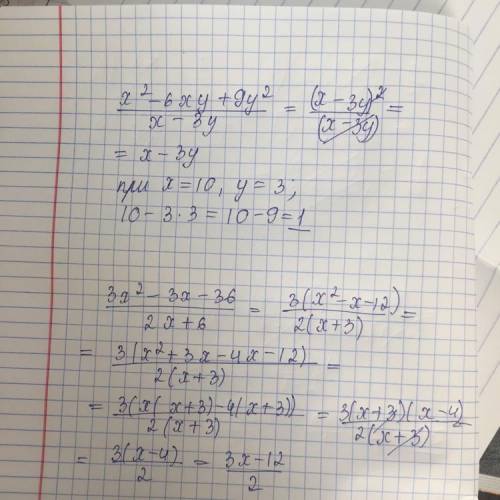 (x² - 6xy + 9y²)/(x - 3y) = (x - 3y)²/(x - 3y) =
= x - 3y
при x = 10, y = 3;
10 - 3 · 3 = 10 - 9 = 1
(3x² - 3x - 36)/(2x + 6) = 3(x² - x - 12)/2(x + 3) =
= 3(x² + 3x - 4x - 12)/2(x + 3) =
= 3(x(x + 3) - 4(x + 3))/2(x + 3) = 3(x + 3)(x - 4)/2(x + 3)
= 3(x - 4)/2 = (3x - 12)/2